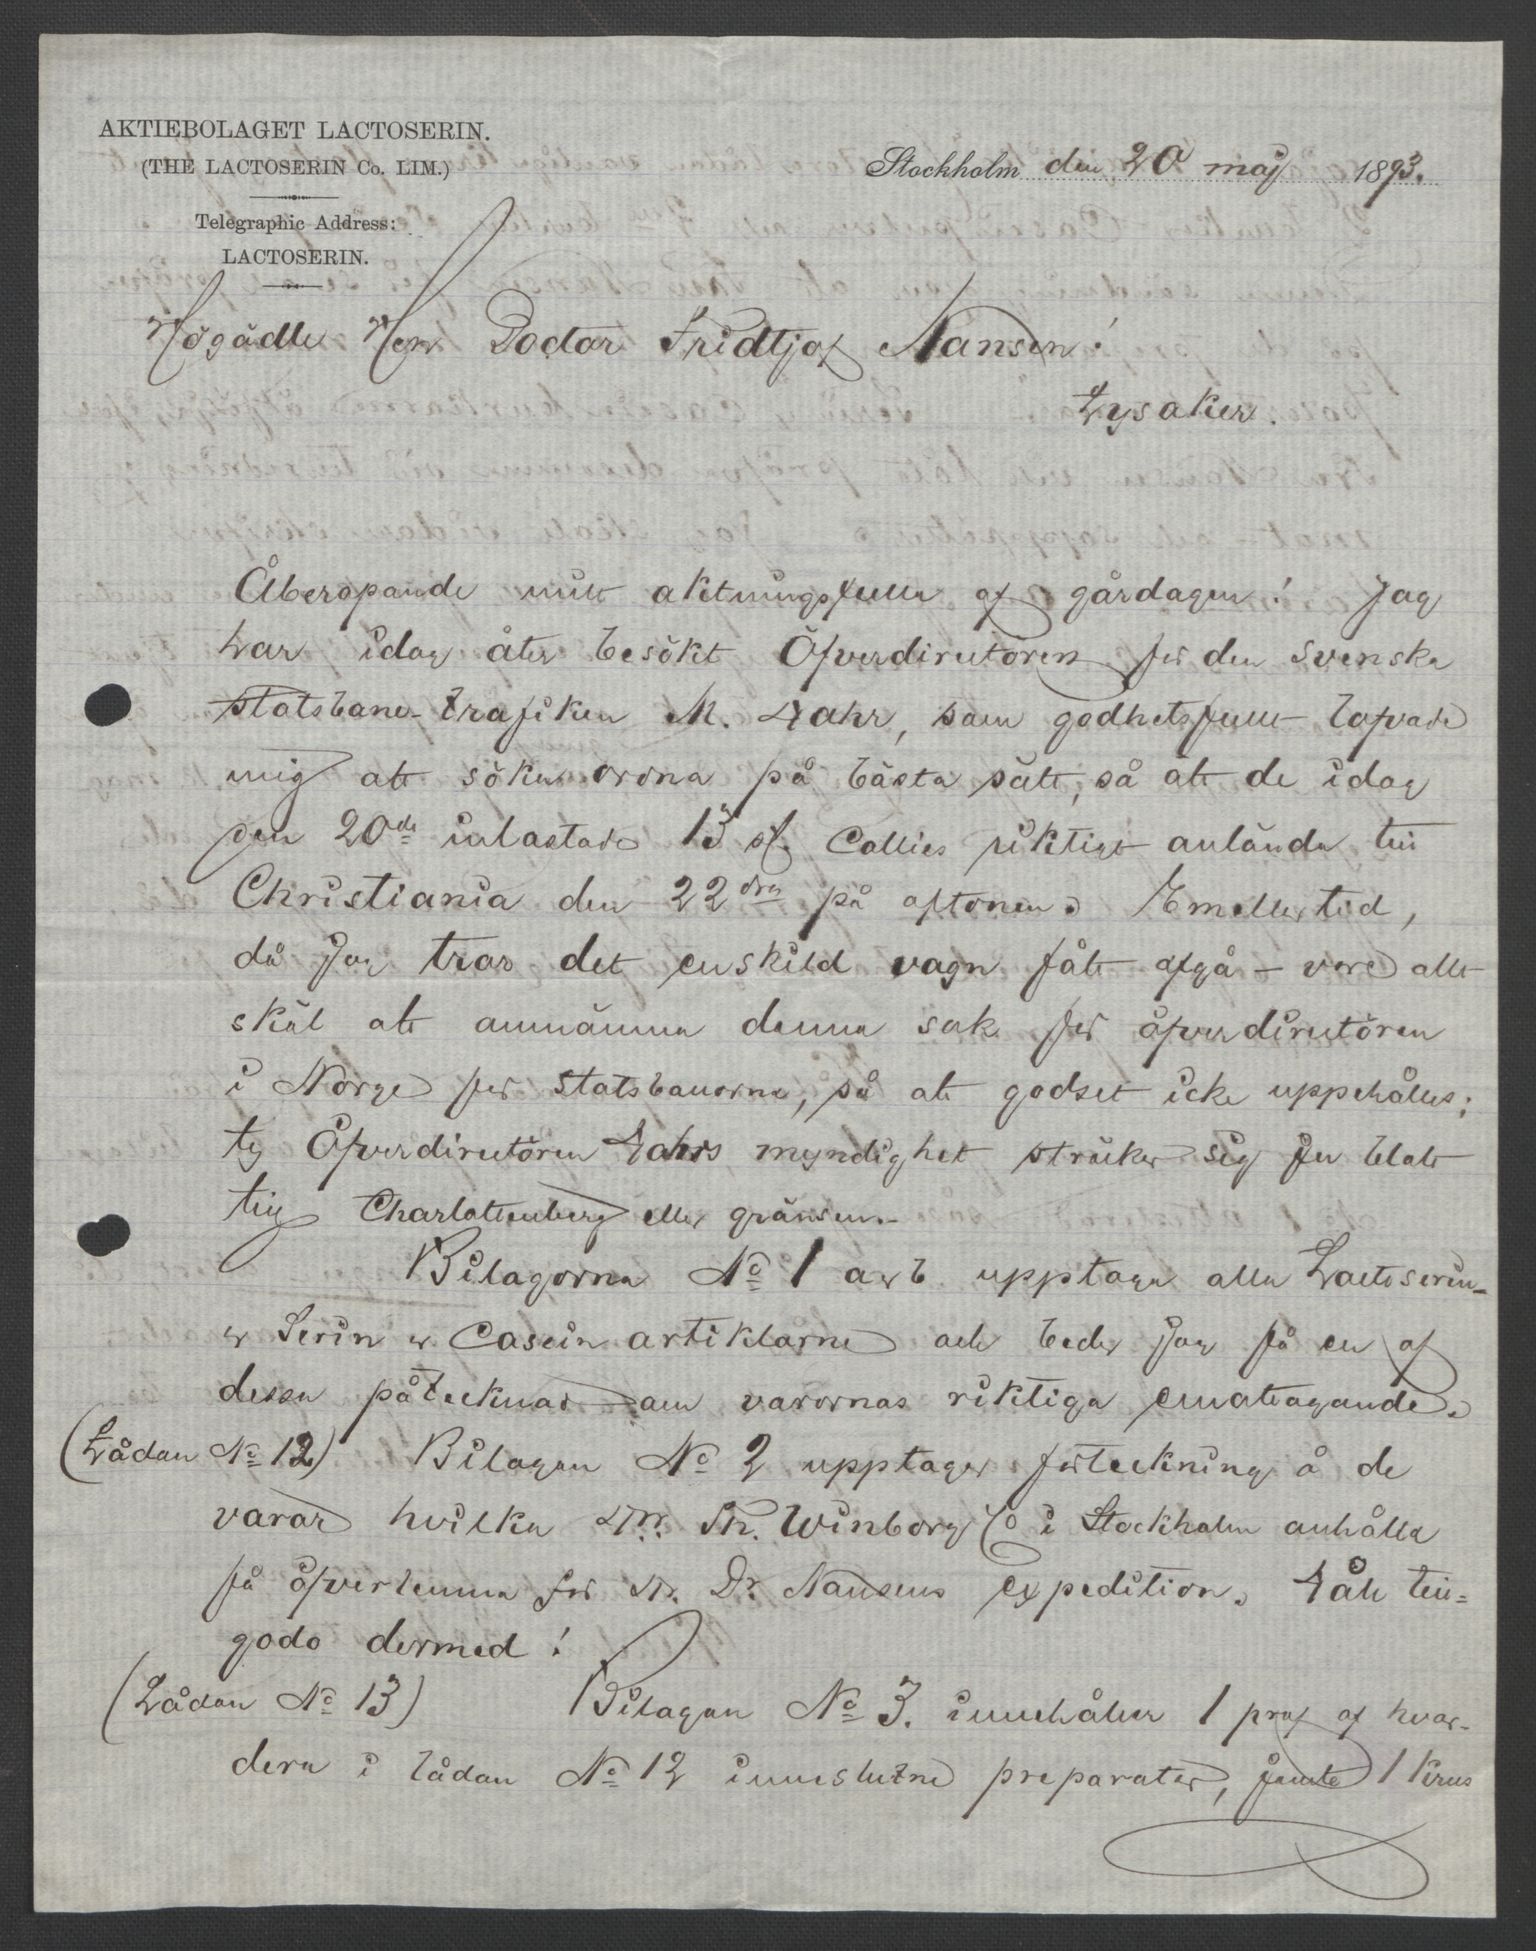 AKTIEBOLAGET LACTOSERIN.
(THE LACTOSERIN Co. LIM.)
Telegraphic Address:
LACTOSERIN.
Stockholm den 20 maj 1893.
Högädle Herr Doctor Fridtjof Nansen!
Lysaker.
Åberopande mitt aktningsfulla af gårdagen! Jag
har idag åter besökt Öfverdirektören för den svenska
statsbane-trafiken M. , som godhetsfullt lofvade
mig att söka ordna på bästa sätt, så att de idag
den 20de inlastade 13 st. Collies riktigt anlända till
Christiania den 22dra på aftonen. Emellertid,
då jag tror det enskild vagn fått afgå - vore allt
skäl att omnämna denna sak för öfverdirektören
i Norge för statsbanorna, så att godset icke uppehålles;
ty Öfverdirektören myndighet sträcker sig ju blott
till Charlottenberg eller gränsen.-
Bilagorna No 1 a & b upptaga alla Lactoserin-
& Serin & Casein artiklarne och beder jag få en af
dessa påtecknad om varornas riktiga emottagande.
(Lådan No 12) Bilagan No 2 upptager förteckning å de
varor hvilka Hrr Th. Winborg & Co i Stockholm anhålla
få öfverlemna för Hr. Dr. Nansens expedition. Håll till-
godo dermed!
(Lådan No 13) Bilagan No 3. innehåller 1 prof af hvar-
dera i lådan No 12 inneslutne preparater, jemte 1 krus